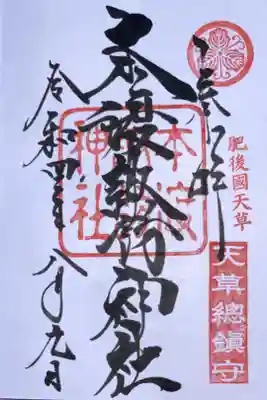 肥後國天草
天草總鎮守
本渡諏訪神社
本渡諏訪神社
令和四年八月九日